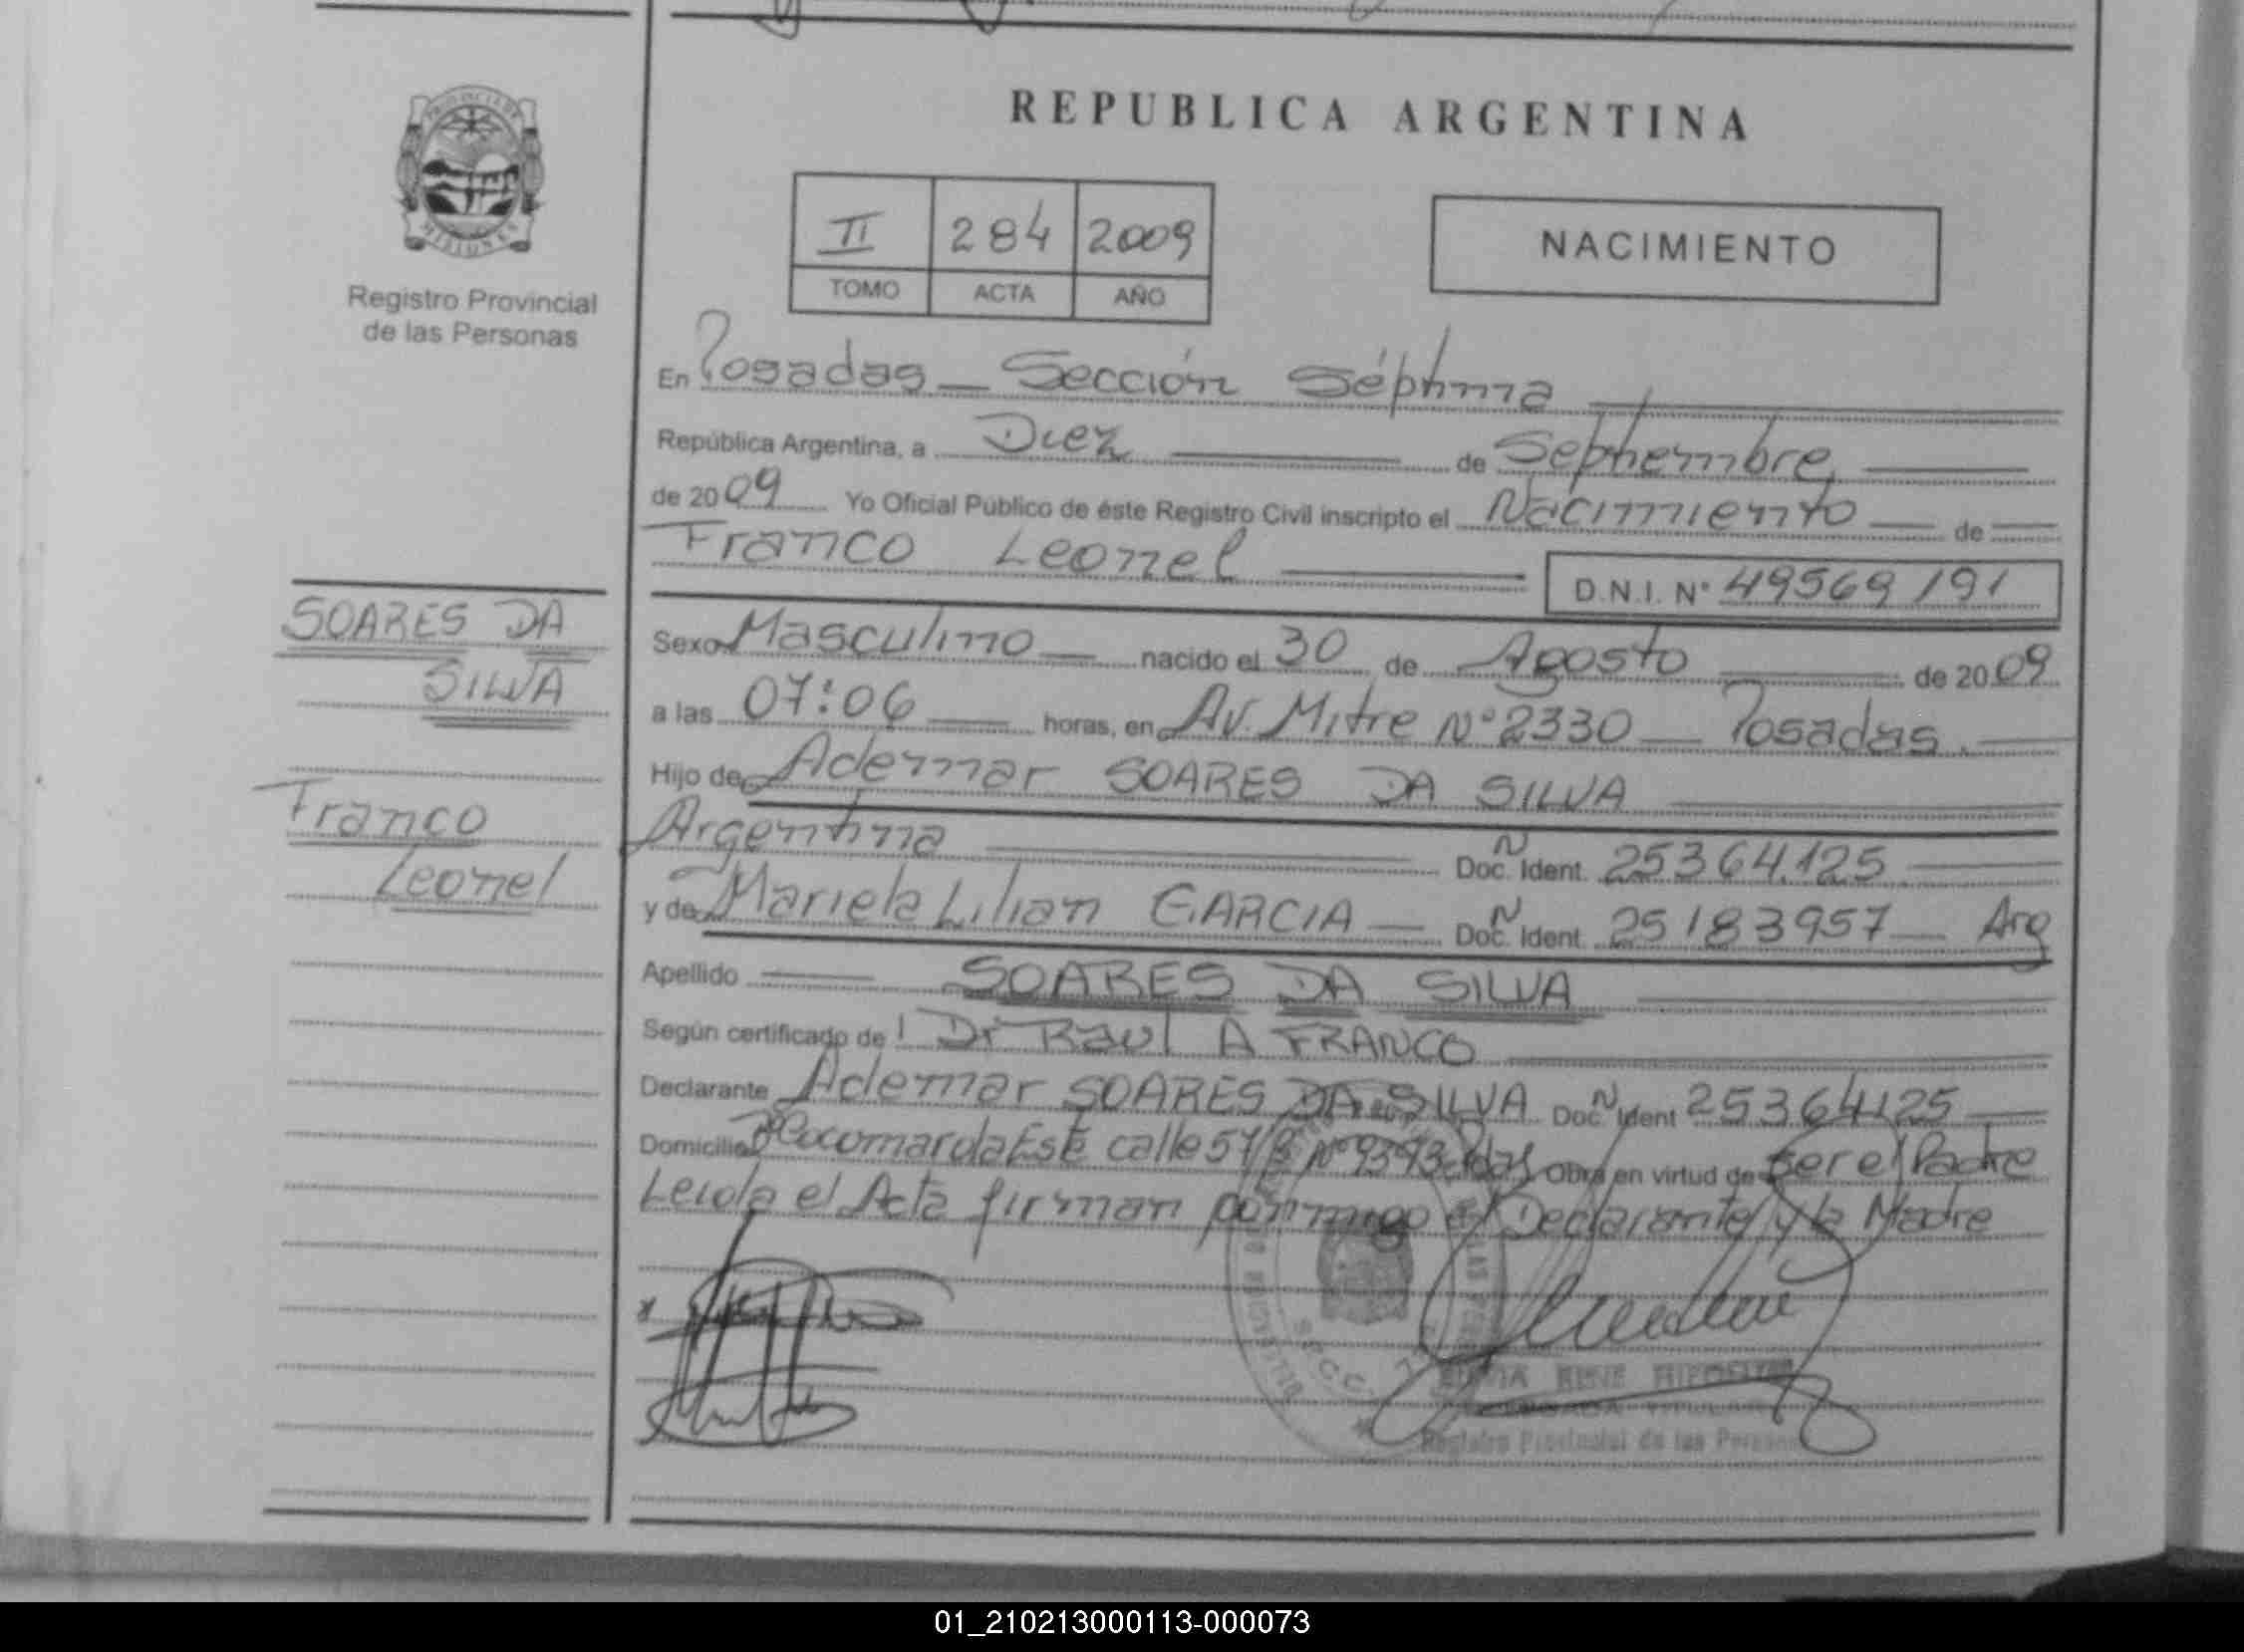 REPUBLICA ARGENTINA
PROVINCIA DE
MISIONES
Registro Provincial
de las Personas
II 284 2009
TOMO ACTA AÑO
NACIMIENTO
En Posadas — Sección Séptima
República Argentina, a Diez de Septiembre
de 2009 Yo Oficial Público de éste Registro Civil inscripto el Nacimiento de
Franco Leonel
D.N.I. N° 49569191
SOARES DA
SILVA
Franco
Leonel
Sexo Masculino nacido el 30 de Agosto de 2009
a las 07:06 horas, en Av. Mitre N° 2330 — Posadas.
Hijo de Ademar SOARES DA SILVA
Argentina Doc. N Ident. 25364.125
y de Mariela Lilian GARCIA — Doc. N Ident. 25183957 — Arg
Apellido SOARES DA SILVA
Según certificado de Dr Raul A FRANCO
Declarante Ademar SOARES DA SILVA Doc. N Ident 25364125
Domicilio Este calle 57 Obra en virtud de ser el Padre
Leida el Acta firman conmigo el Declarante y la Madre
Registro Provincial de las Personas
01_210213000113-000073